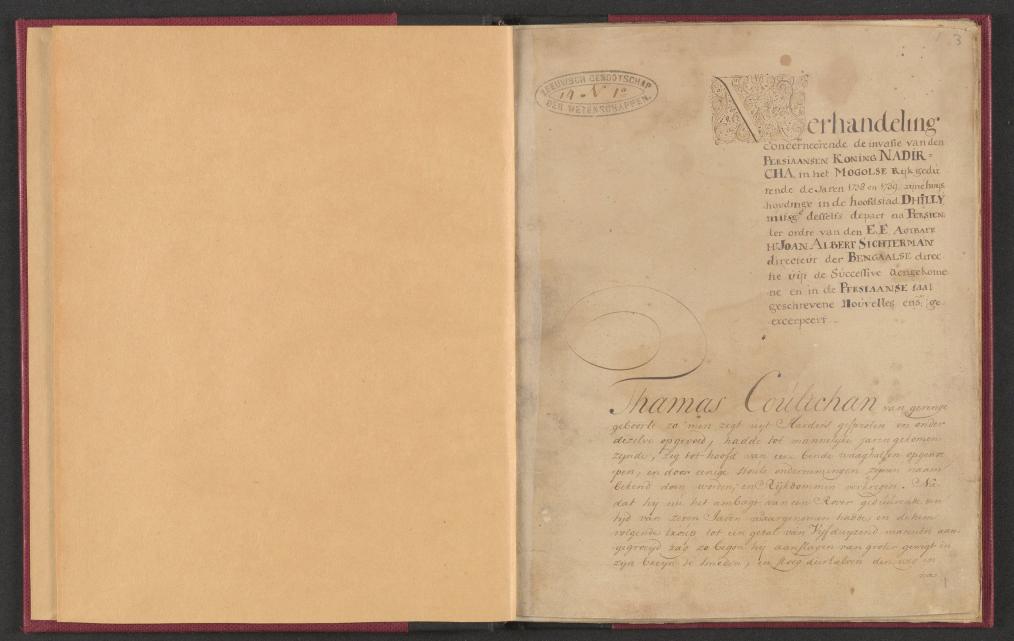 3
ZEEUWSCH GENOOTSCHAP
DER WETENSCHAPPEN.
Verhandeling
concerneerende de invasie van den
PERSIAANSEN KONING NADIR=
CHA, in het MOGOLSE Rijk gedu
rende de Jaren 1738 en 1739. zijne huijs
houdinge in de hoofdstad DHILLY
mitsgs desselfs depart na PERSIEN
ter ordre van den E.E. ACHTBARE
Hr. JOAN ALBERT SICHTERMAN
directeur der BENGAALSE direc
tie uijt de Successive aengekome
ne en in de PERSIAANSE taal
geschrevene Nouvelles ens. ge-
excerpeert
Thamas Coulichan van geringe
geboorte zo men zegt uijt Harders gesproten en onder
dezelve opgevoed, hadde tot mannelijke jaren gekomen
zijnde, zig tot hoofd van een bende waaghalsen opgewor
pen, en door eenige stoute ondernemingen zijnen naam
bekend doen worden, en Rijkdommen verkregen. Na
dat hij nu het ambagt van een Rover geduurende een
tijd van zeven Jaren waargenomen hadde, en de hem
volgende troup tot een getal van Vijfduijzend mannen aan-
gegroeyd zag zo begon hij aanslagen van groter gewigt in
zijn breyn te smeden, en sloeg derhalven den weg in
na